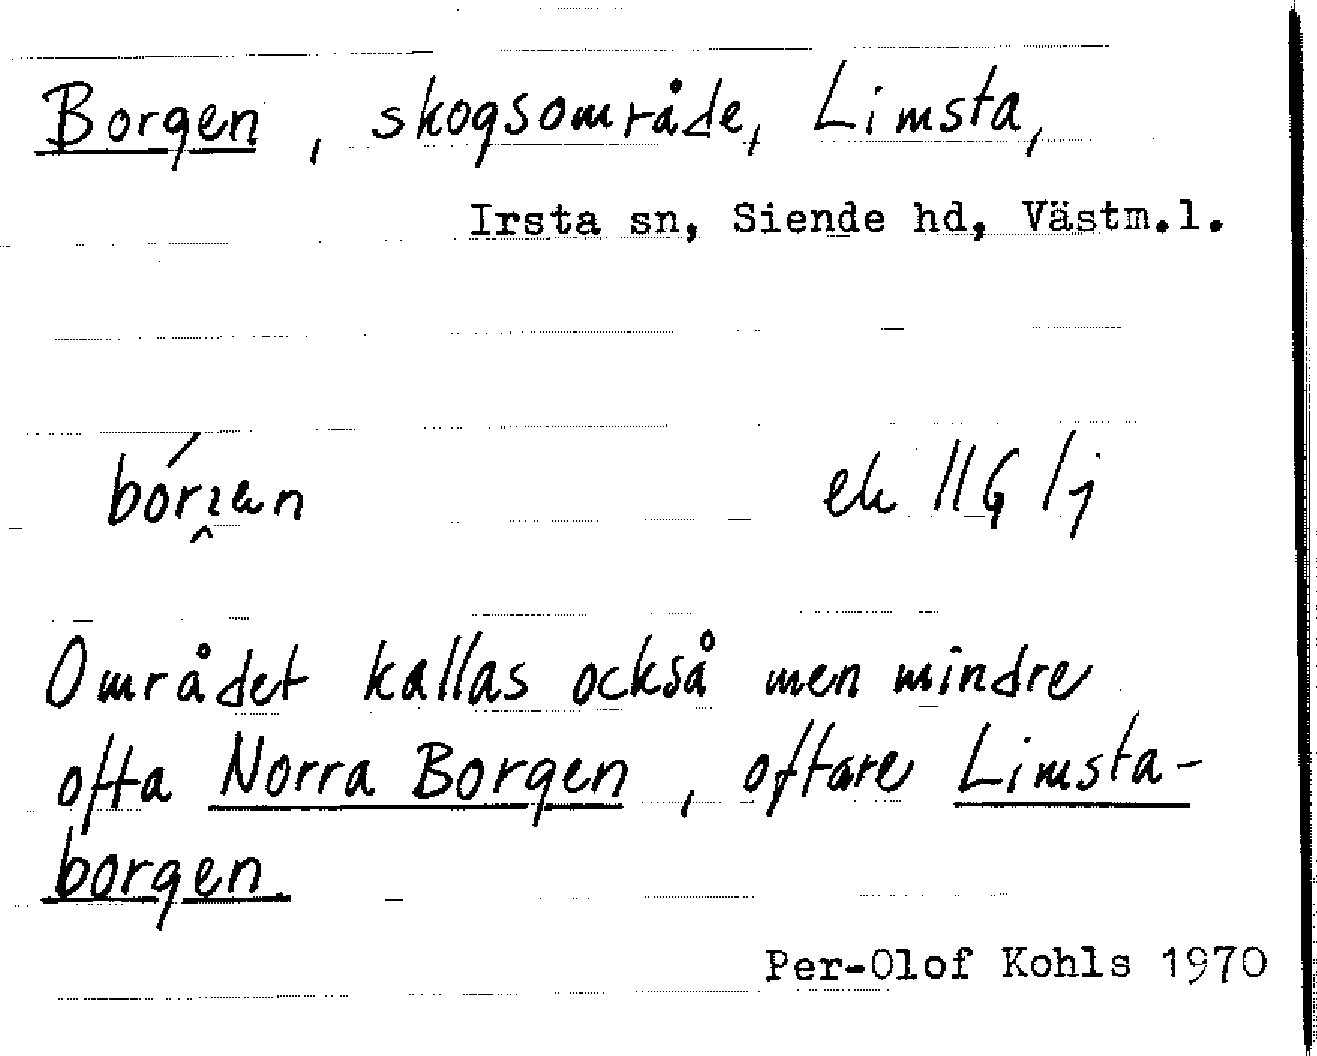 Borgen, skogsområde, Limsta,
Irsta sn, Siende hd, Västm.l.
ek 11G 1j
Området kallas också men mindre
ofta Norra Borgen, oftare Limsta-
borgen.
Per-Olof Kohls 1970